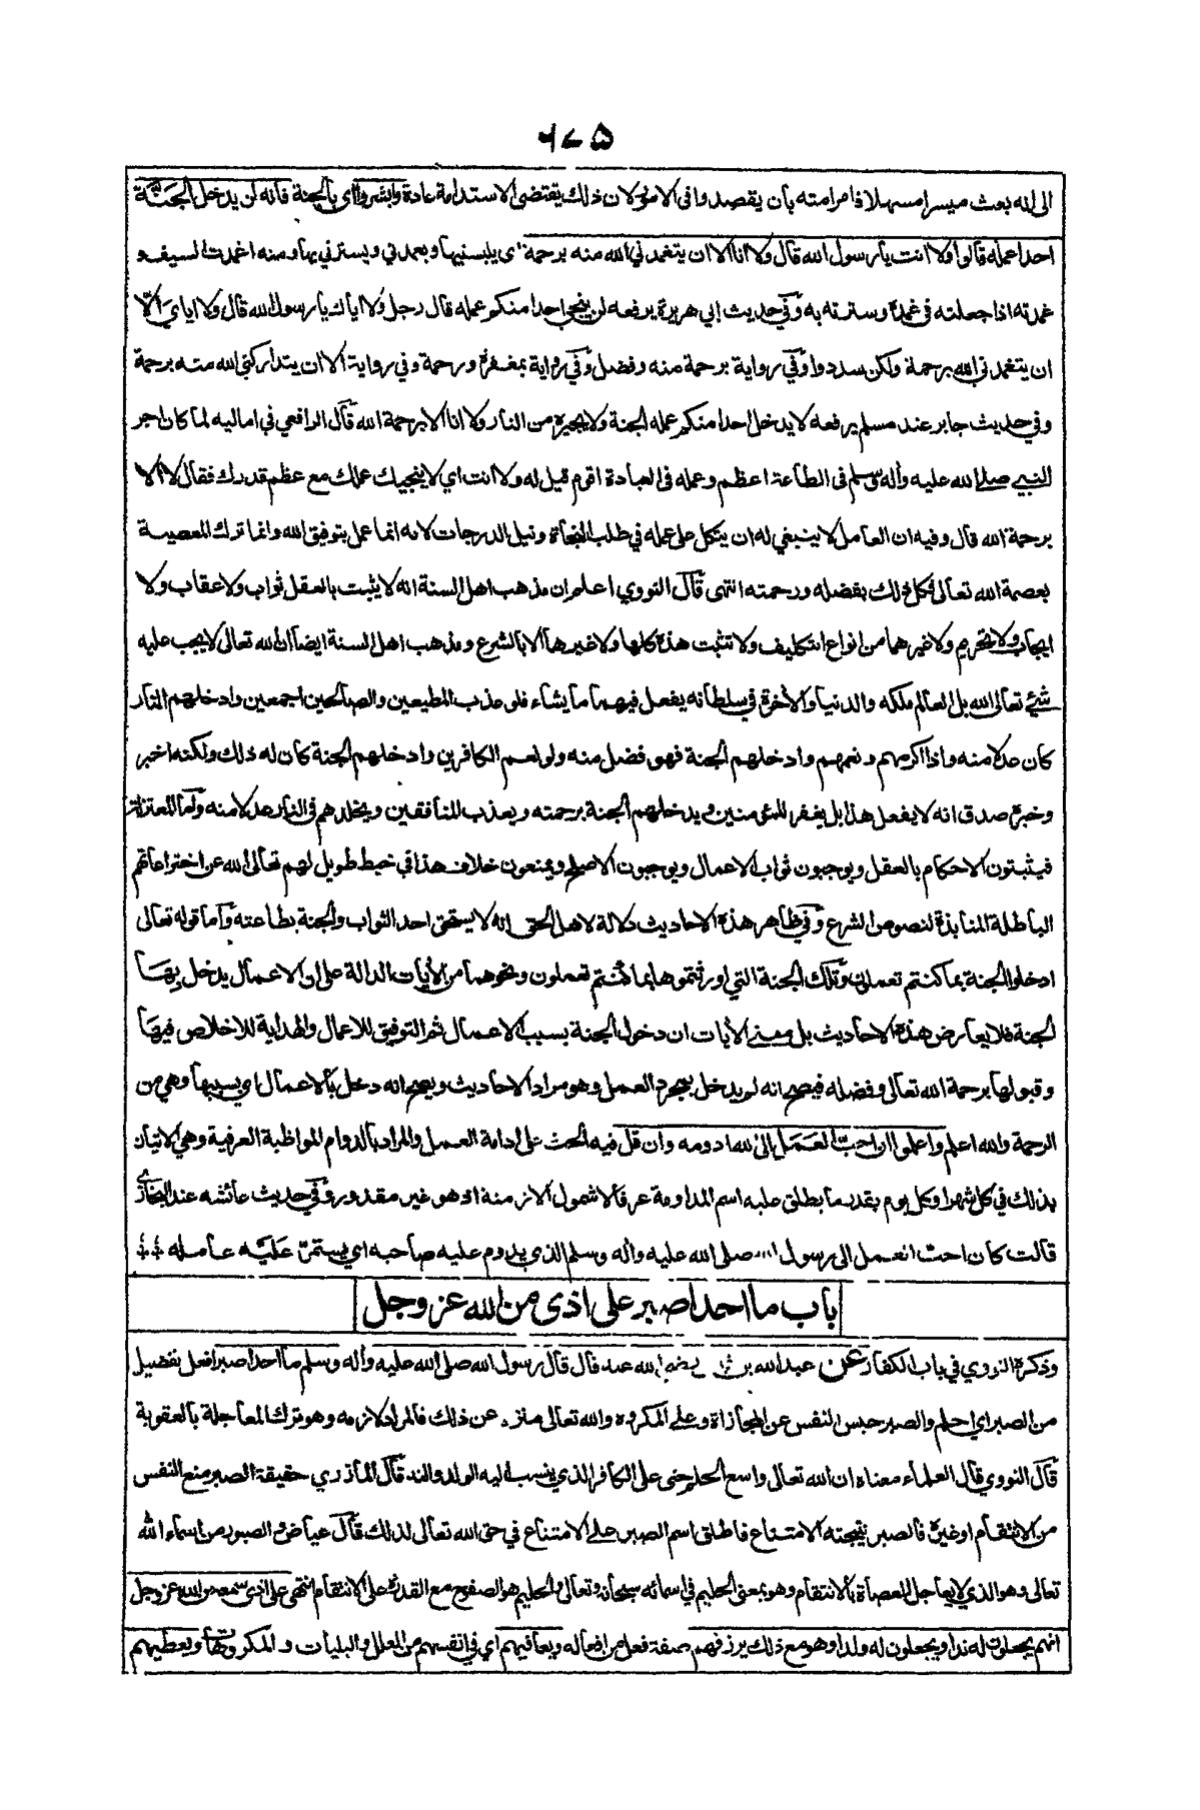 ٦٧٥
الى الله بعث ميسرا مسهلا فامر امته بأن يقصدوا فى الامور لان ذلك يقتضى الاستدامة عادة وابشروا اى بالجنة فأنه لن يدخل الجنة
احدا عمله قالوا ولا انت يارسول الله قال ولا انا الا ان يتغمدني الله منه برحمة اى يلبسنيها ويغمدني ويسترني بها ومنه اغمدت السيف و
غمدته اذا جعلته فى غمده وسترته به وفي حديث ابي هريرة يرفعه لن ينجي احدا منكم عمله قال رجل ولا اياك يا رسول الله قال ولا اياي الا
ان يتغمدني الله برحمة ولكن سددوا وفي رواية برحمة منه وفضل وفي رواية بمغفرة ورحمة وفي رواية الا ان يتداركني الله منه برحمة
وفي حديث جابر عند مسلم يرفعه لا يدخل احدا منكم عمله الجنة ولا يجيره من النار ولا انا الا برحمة الله قال الرافعي في اماليه لما كان اجر
النبي صلى الله عليه وأله وسلم فى الطاعة اعظم وعمله فى العبادة اقوم قيل له ولا انت اي لا ينجيك عملك مع عظم قدرك فقال لا الا
برحمة الله قال وفيه ان العامل لا ينبغي له ان يتكل على عمله في طلب النجاة ونيل الدرجات لانه انما عمل بتوفيق الله وانما ترك المعصية
بعصمة الله تعالى فكل ذلك بفضله ورحمته انتهى قال النووي اعلم ان مذهب اهل السنة انه لا يثبت بالعقل ثواب ولا عقاب ولا
ايجاب ولا تحريم ولا غيرهما من انواع التكليف ولا تثبت هذه كلها ولا غيرها الا بالشرع ومذهب اهل السنة ايضا ان الله تعالى لا يجب عليه
شئ تعالى الله بل العالم ملكه والدنيا والأخرة في سلطانه يفعل فيهما ما يشاء فلو عذب المطيعين والصالحين اجمعين وادخلهم النار
كان عدلا منه واذا اكرمهم ونعمهم وادخلهم الجنة فهو فضل منه ولو نعم الكافرين وادخلهم الجنة كان له ذلك ولكنه اخبر
وخبره صدق انه لا يفعل هذا بل يغفر للمؤمنين ويدخلهم الجنة برحمته ويعذب المنافقين ويخلدهم فى النار عدلا منه واما المعتزلة
فيثبتون الاحكام بالعقل ويوجبون ثواب الاعمال ويوجبون الاصلح ويمنعون خلاف هذا في خبط طويل لهم تعالى الله عن اختراعاتهم
الباطلة المنابذة لنصوص الشرع وفي ظاهر هذه الاحاديث دلالة لاهل الحق انه لا يستحق احد الثواب والجنة بطاعته واما قوله تعالى
ادخلوا الجنة بما كنتم تعملون وتلك الجنة التي اورثتموها بما كنتم تعملون ونحوهما من الأيات الدالة على ان الاعمال يدخل بها
الجنة فلا يعارض هذه الاحاديث بل معنى الأيات ان دخول الجنة بسبب الاعمال ثم التوفيق للاعمال والهداية للاخلاص فيها
وقبولها برحمة الله تعالى وفضله فيصح انه لم يدخل بمجرد العمل وهو مراد الاحاديث ويصح انه دخل بالاعمال اي بسببها وهي من
الرحمة والله اعلم واعلموا ان احب العمل الى الله ادومه وان قل فيه الحث على ادامة العمل والمراد بالدوام المواظبة العرفية وهي الاتيان
بذلك في كل شهر او كل يوم بقدر ما يطلق عليه اسم المداومة عرفا لا شمول الازمنة اذ هو غير مقدور وفي حديث عائشه عند البخاري
قالت كان احب العمل الى رسول الله صلى الله عليه وأله وسلم الذي يدوم عليه صاحبه اي يستمر عليه عامله
باب ما احد اصبر على اذى من الله عز وجل
وذكره النووي في باب الكفار عن عبد الله بن رضي الله عنه قال قال رسول الله صلى الله عليه وأله وسلم ما احد اصبر افعل تفضيل
من الصبر اي احلم والصبر حبس النفس عن المجازاة وعلى المكروه والله تعالى منزه عن ذلك فالمراد لازمه وهو ترك المعاجلة بالعقوبة
قال النووي قال العلماء معناه ان الله تعالى واسع الحلم حتى على الكافر الذي ينسب اليه الولد والند قال المازري حقيقة الصبر منع النفس
من الانتقام او غيره فالصبر نتيجته الامتناع فاطلق اسم الصبر على الامتناع في حق الله تعالى لذلك قال عياض والصبور من اسماء الله
تعالى وهو الذي لا يعاجل العصاة بالانتقام وهو بمعنى الحليم في اسمائه سبحانه وتعالى والحليم هو الصفوح مع القدرة على الانتقام انتهى على اذى سمعه من الله عز وجل
انهم يجعلون له ندا ويجعلون له ولدا وهو مع ذلك يرزقهم صفة فعل من افعاله ويعافيهم اي في انفسهم من العلل والبليات والمكروهات ويعطيهم